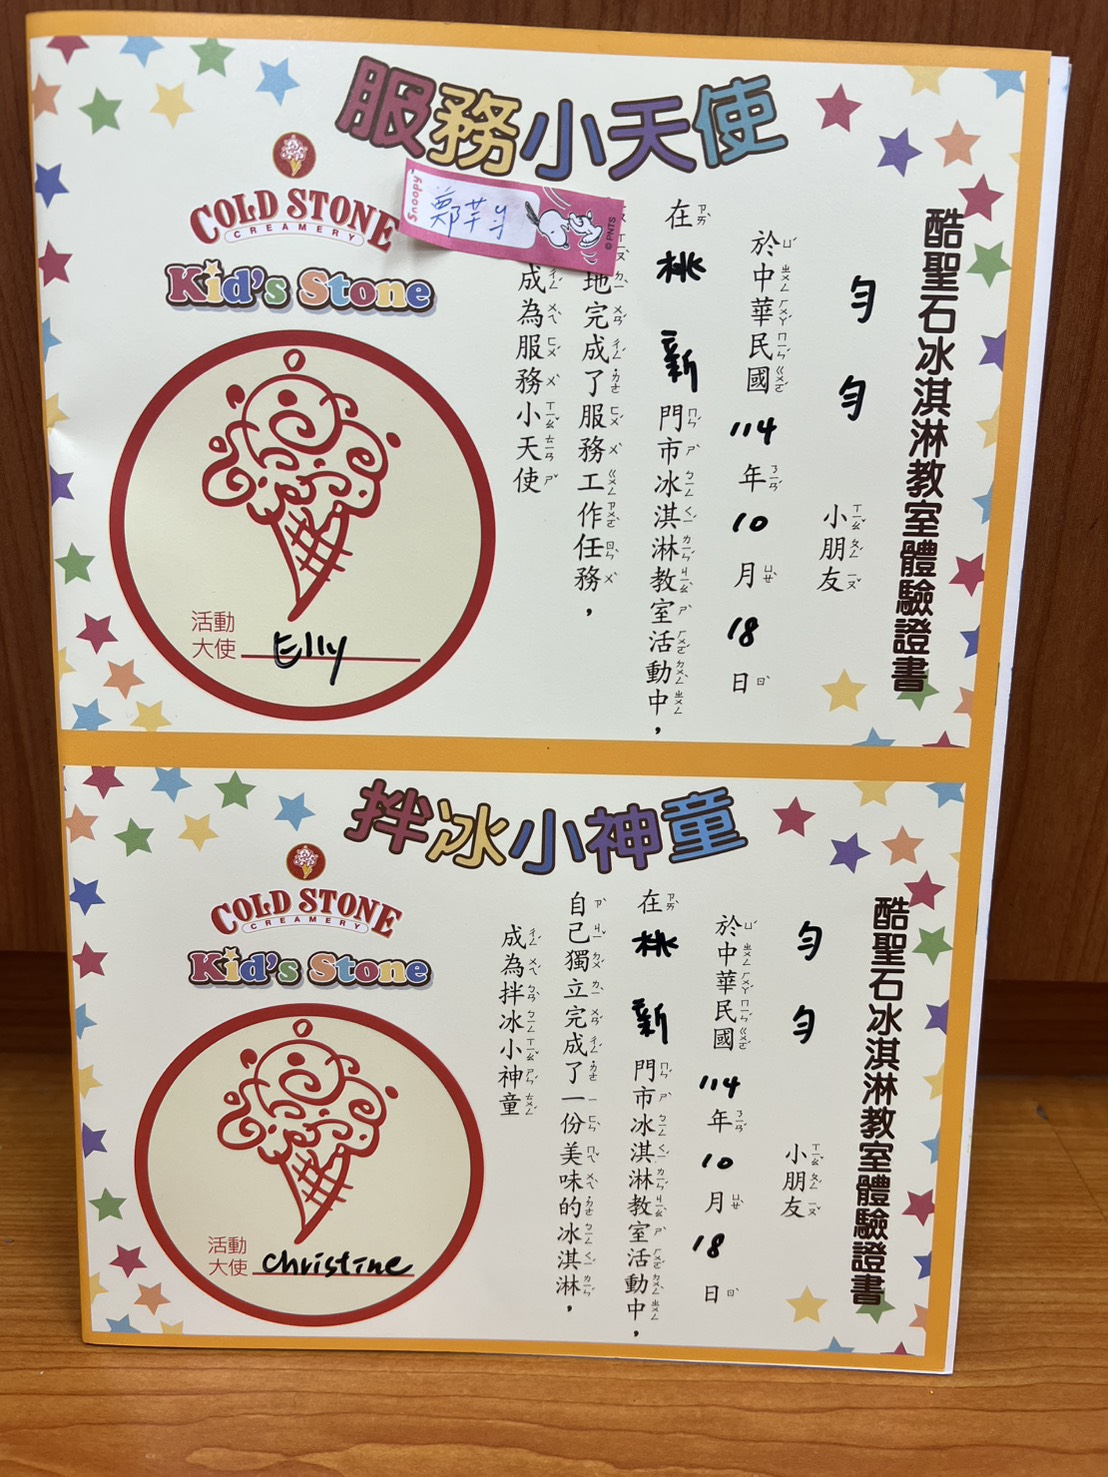 服務小天使
COLD STONE
CREAMERY
Kid's Stone
Snoopy
© PNTS
酷聖石冰淇淋教室體驗證書
勻勻小朋友
於中華民國114年10月18日
在桃新門市冰淇淋教室活動中，
地完成了服務工作任務，
成為服務小天使
活動
大使 Elly
拌冰小神童
COLD STONE
CREAMERY
Kid's Stone
酷聖石冰淇淋教室體驗證書
勻勻小朋友
於中華民國114年10月18日
在桃新門市冰淇淋教室活動中，
自己獨立完成了一份美味的冰淇淋，
成為拌冰小神童
活動
大使 Christine